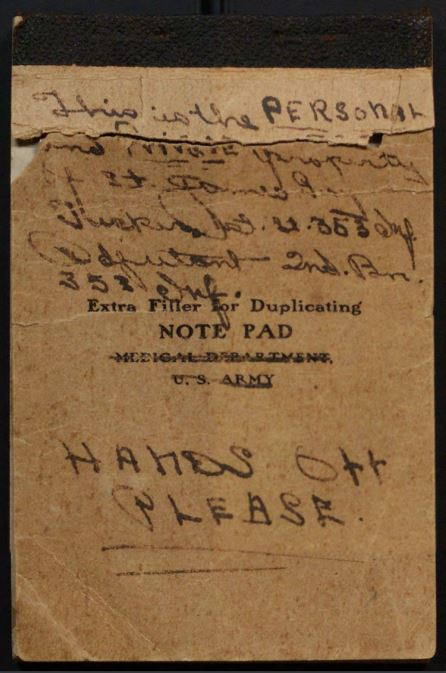 This is the PERSONAL
and Private property
of Lt. James
Tucker, Jr. U. 353 Inf.
Adjutant - 2nd. Bn.
353 Inf.
Extra Filler for Duplicating
NOTE PAD
MEDICAL DEPARTMENT,
U. S. ARMY
HANDS Off
PLEASE.